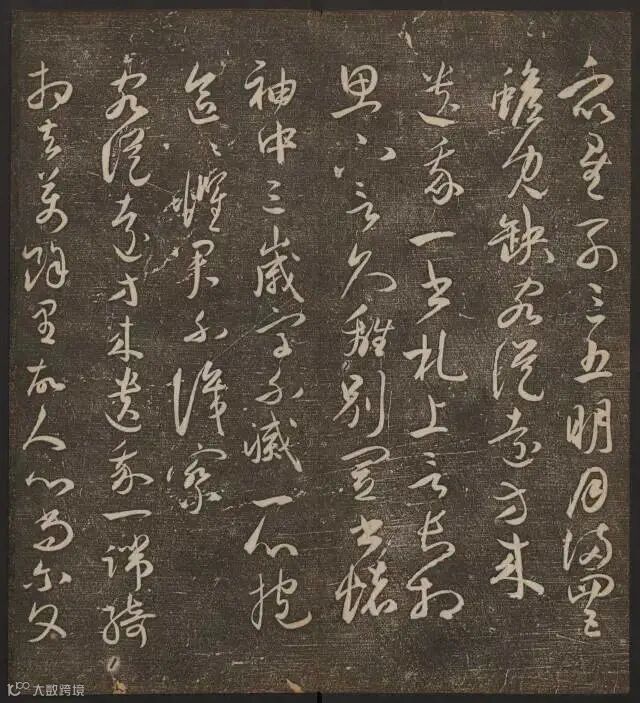 衆星列三五明月滿四五
蟾兔缺客從遠方来
遺我一書札上言長相
思下言久離别置書懷
袖中三歲字不滅一心抱
區〻懼君不識察
客從遠方来遺我一端綺
相去萬餘里故人心尚尔文
大数跨境